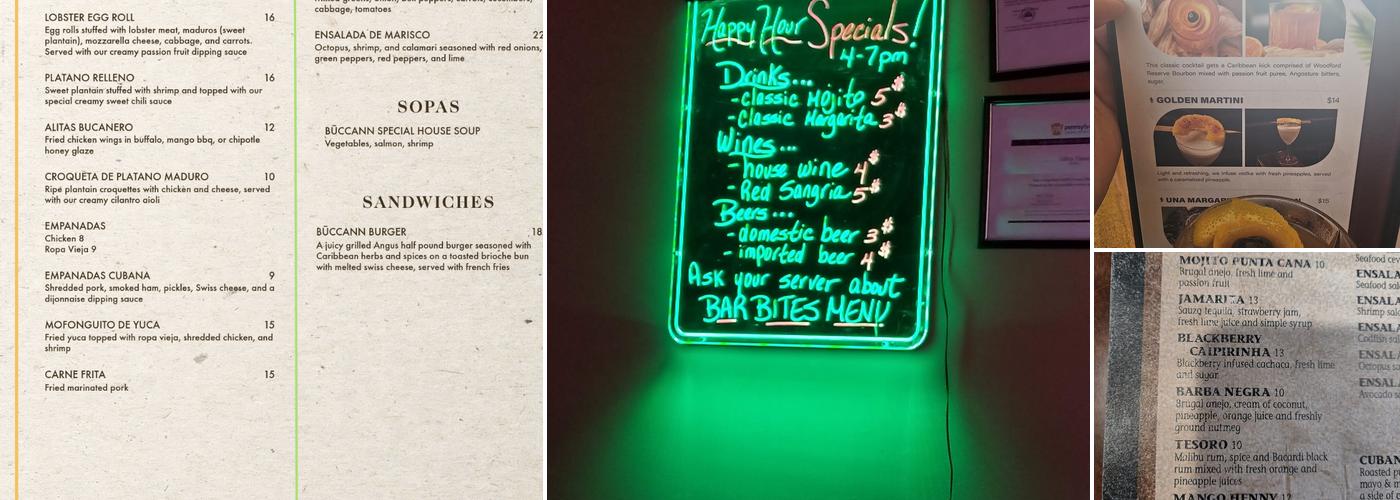 LOBSTER EGG ROLL 16
Egg rolls stuffed with lobster meat, maduros (sweet
plantain), mozzarella cheese, cabbage, and carrots.
Served with our creamy passion fruit dipping sauce
PLATANO RELLENO 16
Sweet plantain stuffed with shrimp and topped with our
special creamy sweet chili sauce
ALITAS BUCANERO 12
Fried chicken wings in buffalo, mango bbq, or chipotle
honey glaze
CROQUETA DE PLATANO MADURO 10
Ripe plantain croquettes with chicken and cheese, served
with our creamy cilantro aioli
EMPANADAS
Chicken 8
Ropa Vieja 9
EMPANADAS CUBANA 9
Shredded pork, smoked ham, pickles, Swiss cheese, and a
dijonnaise dipping sauce
MOFONGUITO DE YUCA 15
Fried yuca topped with ropa vieja, shredded chicken, and
shrimp
CARNE FRITA 15
Fried marinated pork
cabbage, tomatoes
ENSALADA DE MARISCO 22
Octopus, shrimp, and calamari seasoned with red onions,
green peppers, red peppers, and lime
SOPAS
BŪCCANN SPECIAL HOUSE SOUP
Vegetables, salmon, shrimp
SANDWICHES
BŪCCANN BURGER 18
A juicy grilled Angus half pound burger seasoned with
Caribbean herbs and spices on a toasted brioche bun
with melted swiss cheese, served with french fries
Happy Hour Specials!
4-7pm
Drinks...
-classic Mojito 5$
-classic Margarita 3$
Wines...
-house wine 4$
-Red Sangria 5$
Beers...
-domestic beer 3$
-imported beer 4$
Ask your server about
BAR BITES MENU
This classic cocktail gets a Caribbean kick comprised of Woodford
Reserve Bourbon mixed with passion fruit puree, Angosture bitters,
sugar.
GOLDEN MARTINI $14
Light and refreshing, we infuse vodka with fresh pineapples, served
with a caramelized pineapple.
UNA $15
MOJITO PUNTA CANA 10
Brugal anejo, fresh lime and
passion fruit
JAMARITA 13
Sauza tequila, strawberry jam,
fresh lime juice and simple syrup
BLACKBERRY
CAIPIRINHA 13
Blackberry infused cachaca, fresh lime
and sugar
BARBA NEGRA 10
Brugal anejo, cream of coconut,
pineapple, orange juice and freshly
ground nutmeg
TESORO 10
Malibu rum, spice and Bacardi black
rum mixed with fresh orange and
pineapple juices
MANGO HENNY
Seafood
ENSAL
Seafood
ENSAL
Shrimp
ENSAL
Codfish
ENSAL
Octopus
ENSAL
Avocado
CUBAN
Roasted
mayo &